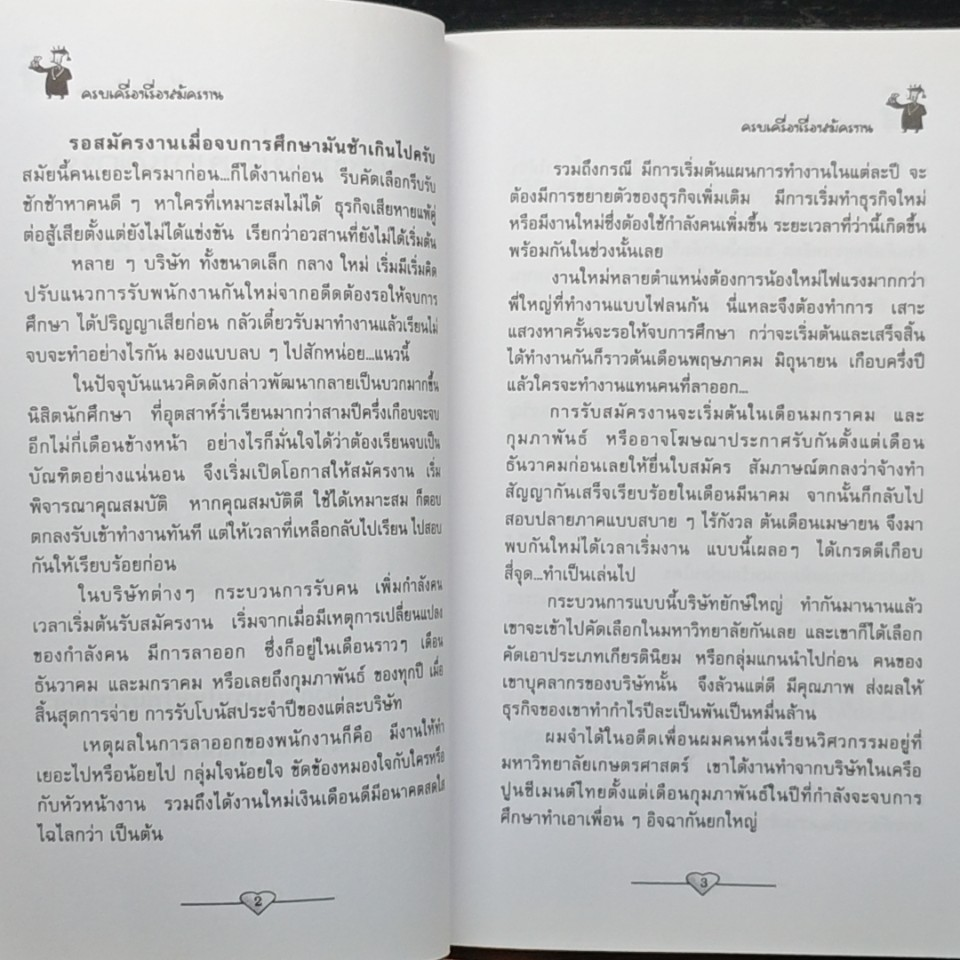 ครบเครื่องเรื่องสมัครงาน
รอสมัครงานเมื่อจบการศึกษามันช้าเกินไปครับ
สมัยนี้คนเยอะใครมาก่อน...ก็ได้งานก่อน รีบคัดเลือกรีบรับ
ชักช้าหาคนดี ๆ หาใครที่เหมาะสมไม่ได้ ธุรกิจเสียหายแพ้คู่
ต่อสู้เสียตั้งแต่ยังไม่ได้แข่งขัน เรียกว่าอวสานที่ยังไม่ได้เริ่มต้น
หลาย ๆ บริษัท ทั้งขนาดเล็ก กลาง ใหม่ เริ่มมีเริ่มคิด
ปรับแนวการรับพนักงานกันใหม่จากอดีตต้องรอให้จบการ
ศึกษา ได้ปริญญาเสียก่อน กลัวเดี๋ยวรับมาทำงานแล้วเรียนไม่
จบจะทำอย่างไรกัน มองแบบลบ ๆ ไปสักหน่อย...แนวนี้
ในปัจจุบันแนวคิดดังกล่าวพัฒนากลายเป็นบวกมากขึ้น
นิสิตนักศึกษา ที่อุตสาห์ร่ำเรียนมากว่าสามปีครึ่งเกือบจะจบ
อีกไม่กี่เดือนข้างหน้า อย่างไรก็มั่นใจได้ว่าต้องเรียนจบเป็น
บัณฑิตอย่างแน่นอน จึงเริ่มเปิดโอกาสให้สมัครงาน เริ่ม
พิจารณาคุณสมบัติ หากคุณสมบัติดี ใช้ได้เหมาะสม ก็ตอบ
ตกลงรับเข้าทำงานทันที แต่ให้เวลาที่เหลือกลับไปเรียน ไปสอบ
กันให้เรียบร้อยก่อน
ในบริษัทต่างๆ กระบวนการรับคน เพิ่มกำลังคน
เวลาเริ่มต้นรับสมัครงาน เริ่มจากเมื่อมีเหตุการเปลี่ยนแปลง
ของกำลังคน มีการลาออก ซึ่งก็อยู่ในเดือนราวๆ เดือน
ธันวาคม และมกราคม หรือเลยถึงกุมภาพันธ์ ของทุกปี เมื่อ
สิ้นสุดการจ่าย การรับโบนัสประจำปีของแต่ละบริษัท
เหตุผลในการลาออกของพนักงานก็คือ มีงานให้ทำ
เยอะไปหรือน้อยไป กลุ่มใจน้อยใจ ขัดข้องหมองใจกับใครหรือ
กับหัวหน้างาน รวมถึงได้งานใหม่เงินเดือนดีมีอนาคตสดใส
ไฉไลกว่า เป็นต้น
2
ครบเครื่องเรื่องสมัครงาน
รวมถึงกรณี มีการเริ่มต้นแผนการทำงานในแต่ละปี จะ
ต้องมีการขยายตัวของธุรกิจเพิ่มเติม มีการเริ่มทำธุรกิจใหม่
หรือมีงานใหม่ซึ่งต้องใช้กำลังคนเพิ่มขึ้น ระยะเวลาที่ว่านี้เกิดขึ้น
พร้อมกันในช่วงนั้นเลย
งานใหม่หลายตำแหน่งต้องการน้องใหม่ไฟแรงมากกว่า
พี่ใหญ่ที่ทำงานแบบไฟลนกัน นี่แหละจึงต้องทำการ เสาะ
แสวงหาครั้นจะรอให้จบการศึกษา กว่าจะเริ่มต้นและเสร็จสิ้น
ได้ทำงานกันก็ราวต้นเดือนพฤษภาคม มิถุนายน เกือบครึ่งปี
แล้วใครจะทำงานแทนคนที่ลาออก...
การรับสมัครงานจะเริ่มต้นในเดือนมกราคม และ
กุมภาพันธ์ หรืออาจโฆษณาประกาศรับกันตั้งแต่เดือน
ธันวาคมก่อนเลยให้ยื่นใบสมัคร สัมภาษณ์ตกลงว่าจ้างทำ
สัญญากันเสร็จเรียบร้อยในเดือนมีนาคม จากนั้นก็กลับไป
สอบปลายภาคแบบสบาย ๆ ไร้กังวล ต้นเดือนเมษายน จึงมา
พบกันใหม่ได้เวลาเริ่มงาน แบบนี้เผลอๆ ได้เกรดดีเกือบ
สี่จุด...ทำเป็นเล่นไป
กระบวนการแบบนี้บริษัทยักษ์ใหญ่ ทำกันมานานแล้ว
เขาจะเข้าไปคัดเลือกในมหาวิทยาลัยกันเลย และเขาก็ได้เลือก
คัดเอาประเภทเกียรตินิยม หรือกลุ่มแกนนำไปก่อน คนของ
เขาบุคลากรของบริษัทนั้น จึงล้วนแต่ดี มีคุณภาพ ส่งผลให้
ธุรกิจของเขาทำกำไรปีละเป็นพันเป็นหมื่นล้าน
ผมจำได้ในอดีตเพื่อนผมคนหนึ่งเรียนวิศวกรรมอยู่ที่
มหาวิทยาลัยเกษตรศาสตร์ เขาได้งานทำจากบริษัทในเครือ
ปูนซีเมนต์ไทยตั้งแต่เดือนกุมภาพันธ์ในปีที่กำลังจะจบการ
ศึกษาทำเอาเพื่อน ๆ อิจฉากันยกใหญ่
3